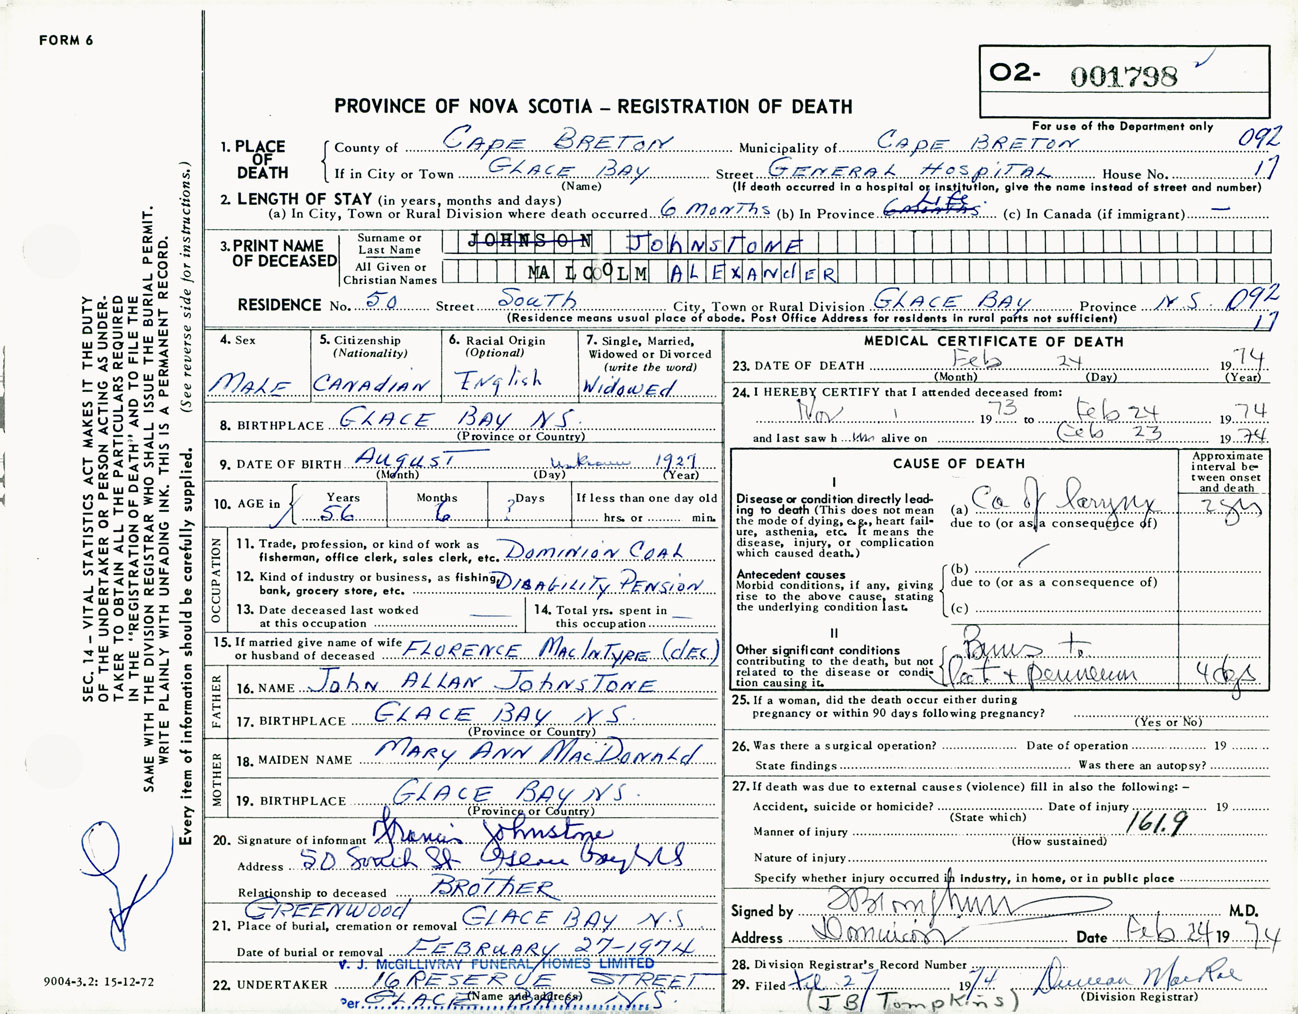 FORM 6
O2- 001798
PROVINCE OF NOVA SCOTIA – REGISTRATION OF DEATH
For use of the Department only
1. PLACE OF DEATH
County of CAPE BRETON Municipality of CAPE BRETON 092
If in City or Town GLACE BAY Street GENERAL HOSPITAL House No. 17
(Name) (If death occurred in a hospital or institution, give the name instead of street and number)
2. LENGTH OF STAY (in years, months and days)
(a) In City, Town or Rural Division where death occurred 6 MONTHS (b) In Province 6 MONTHS LIFE (c) In Canada (if immigrant) —
3. PRINT NAME OF DECEASED
Surname or Last Name JOHNSON JOHNSTONE
All Given or Christian Names MALCOLM ALEXANdER
RESIDENCE No. 50 Street SOUTH City, Town or Rural Division GLACE BAY Province N.S. 092
(Residence means usual place of abode. Post Office Address for residents in rural parts not sufficient) 17
4. Sex MALE
5. Citizenship (Nationality) CANADIAN
6. Racial Origin (Optional) English
7. Single, Married, Widowed or Divorced (write the word) WIDOWED
8. BIRTHPLACE GLACE BAY NS.
(Province or Country)
9. DATE OF BIRTH AUGUST unknown 1927
(Month) (Day) (Year)
10. AGE in Years 56 Months 6 Days ? If less than one day old
hrs. or min.
OCCUPATION
11. Trade, profession, or kind of work as fisherman, office clerk, sales clerk, etc. DOMINION COAL
12. Kind of industry or business, as fishing, bank, grocery store, etc. DISABILITY PENSION
13. Date deceased last worked at this occupation —
14. Total yrs. spent in this occupation —
15. If married give name of wife or husband of deceased FLORENCE MACINTYRE (dEC)
FATHER
16. NAME JOHN ALLAN JOHNSTONE
17. BIRTHPLACE GLACE BAY NS.
(Province or Country)
MOTHER
18. MAIDEN NAME MARY ANN MACDONALD
19. BIRTHPLACE GLACE BAY NS.
(Province or Country)
20. Signature of informant Francis Johnstone
Address 50 South St Glace Bay NS
Relationship to deceased BROTHER
GREENWOOD
21. Place of burial, cremation or removal GLACE BAY N.S
Date of burial or removal FEBRUARY 27-1974
V. J. McGILLIVRAY FUNERAL HOMES LIMITED
22. UNDERTAKER 16 RESERVE STREET
(Name and address)
Per GLACE BAY N.S.
MEDICAL CERTIFICATE OF DEATH
23. DATE OF DEATH Feb 24 1974
(Month) (Day) (Year)
24. I HEREBY CERTIFY that I attended deceased from:
Nov 1 1973 to Feb 24 1974
and last saw him alive on Feb 23 1974
CAUSE OF DEATH
Approximate interval between onset and death
I
Disease or condition directly leading to death (This does not mean the mode of dying, e.g., heart failure, asthenia, etc. It means the disease, injury, or complication which caused death.)
(a) Ca of larynx 2 yrs
due to (or as a consequence of)
Antecedent causes
Morbid conditions, if any, giving rise to the above cause, stating the underlying condition last.
(b)
due to (or as a consequence of)
(c)
II
Other significant conditions contributing to the death, but not related to the disease or condition causing it.
Burns to
& perineum 4 dys
25. If a woman, did the death occur either during pregnancy or within 90 days following pregnancy?
(Yes or No)
26. Was there a surgical operation? Date of operation 19
State findings Was there an autopsy?
27. If death was due to external causes (violence) fill in also the following: –
Accident, suicide or homicide? Date of injury 19
(State which)
Manner of injury 161.9
(How sustained)
Nature of injury
Specify whether injury occurred in industry, in home, or in public place
Signed by M.D.
Address Dominion Date Feb 24 1974
28. Division Registrar's Record Number
29. Filed Feb. 27 1974 Duncan MacRae
(JB Tompkins) (Division Registrar)
SEC. 14 – VITAL STATISTICS ACT MAKES IT THE DUTY
OF THE UNDERTAKER OR PERSON ACTING AS UNDER-
TAKER TO OBTAIN ALL THE PARTICULARS REQUIRED
IN THE "REGISTRATION OF DEATH" AND TO FILE THE
SAME WITH THE DIVISION REGISTRAR WHO SHALL ISSUE THE BURIAL PERMIT.
WRITE PLAINLY WITH UNFADING INK. THIS IS A PERMANENT RECORD.
Every item of information should be carefully supplied. (See reverse side for instructions.)
9004-3.2: 15-12-72